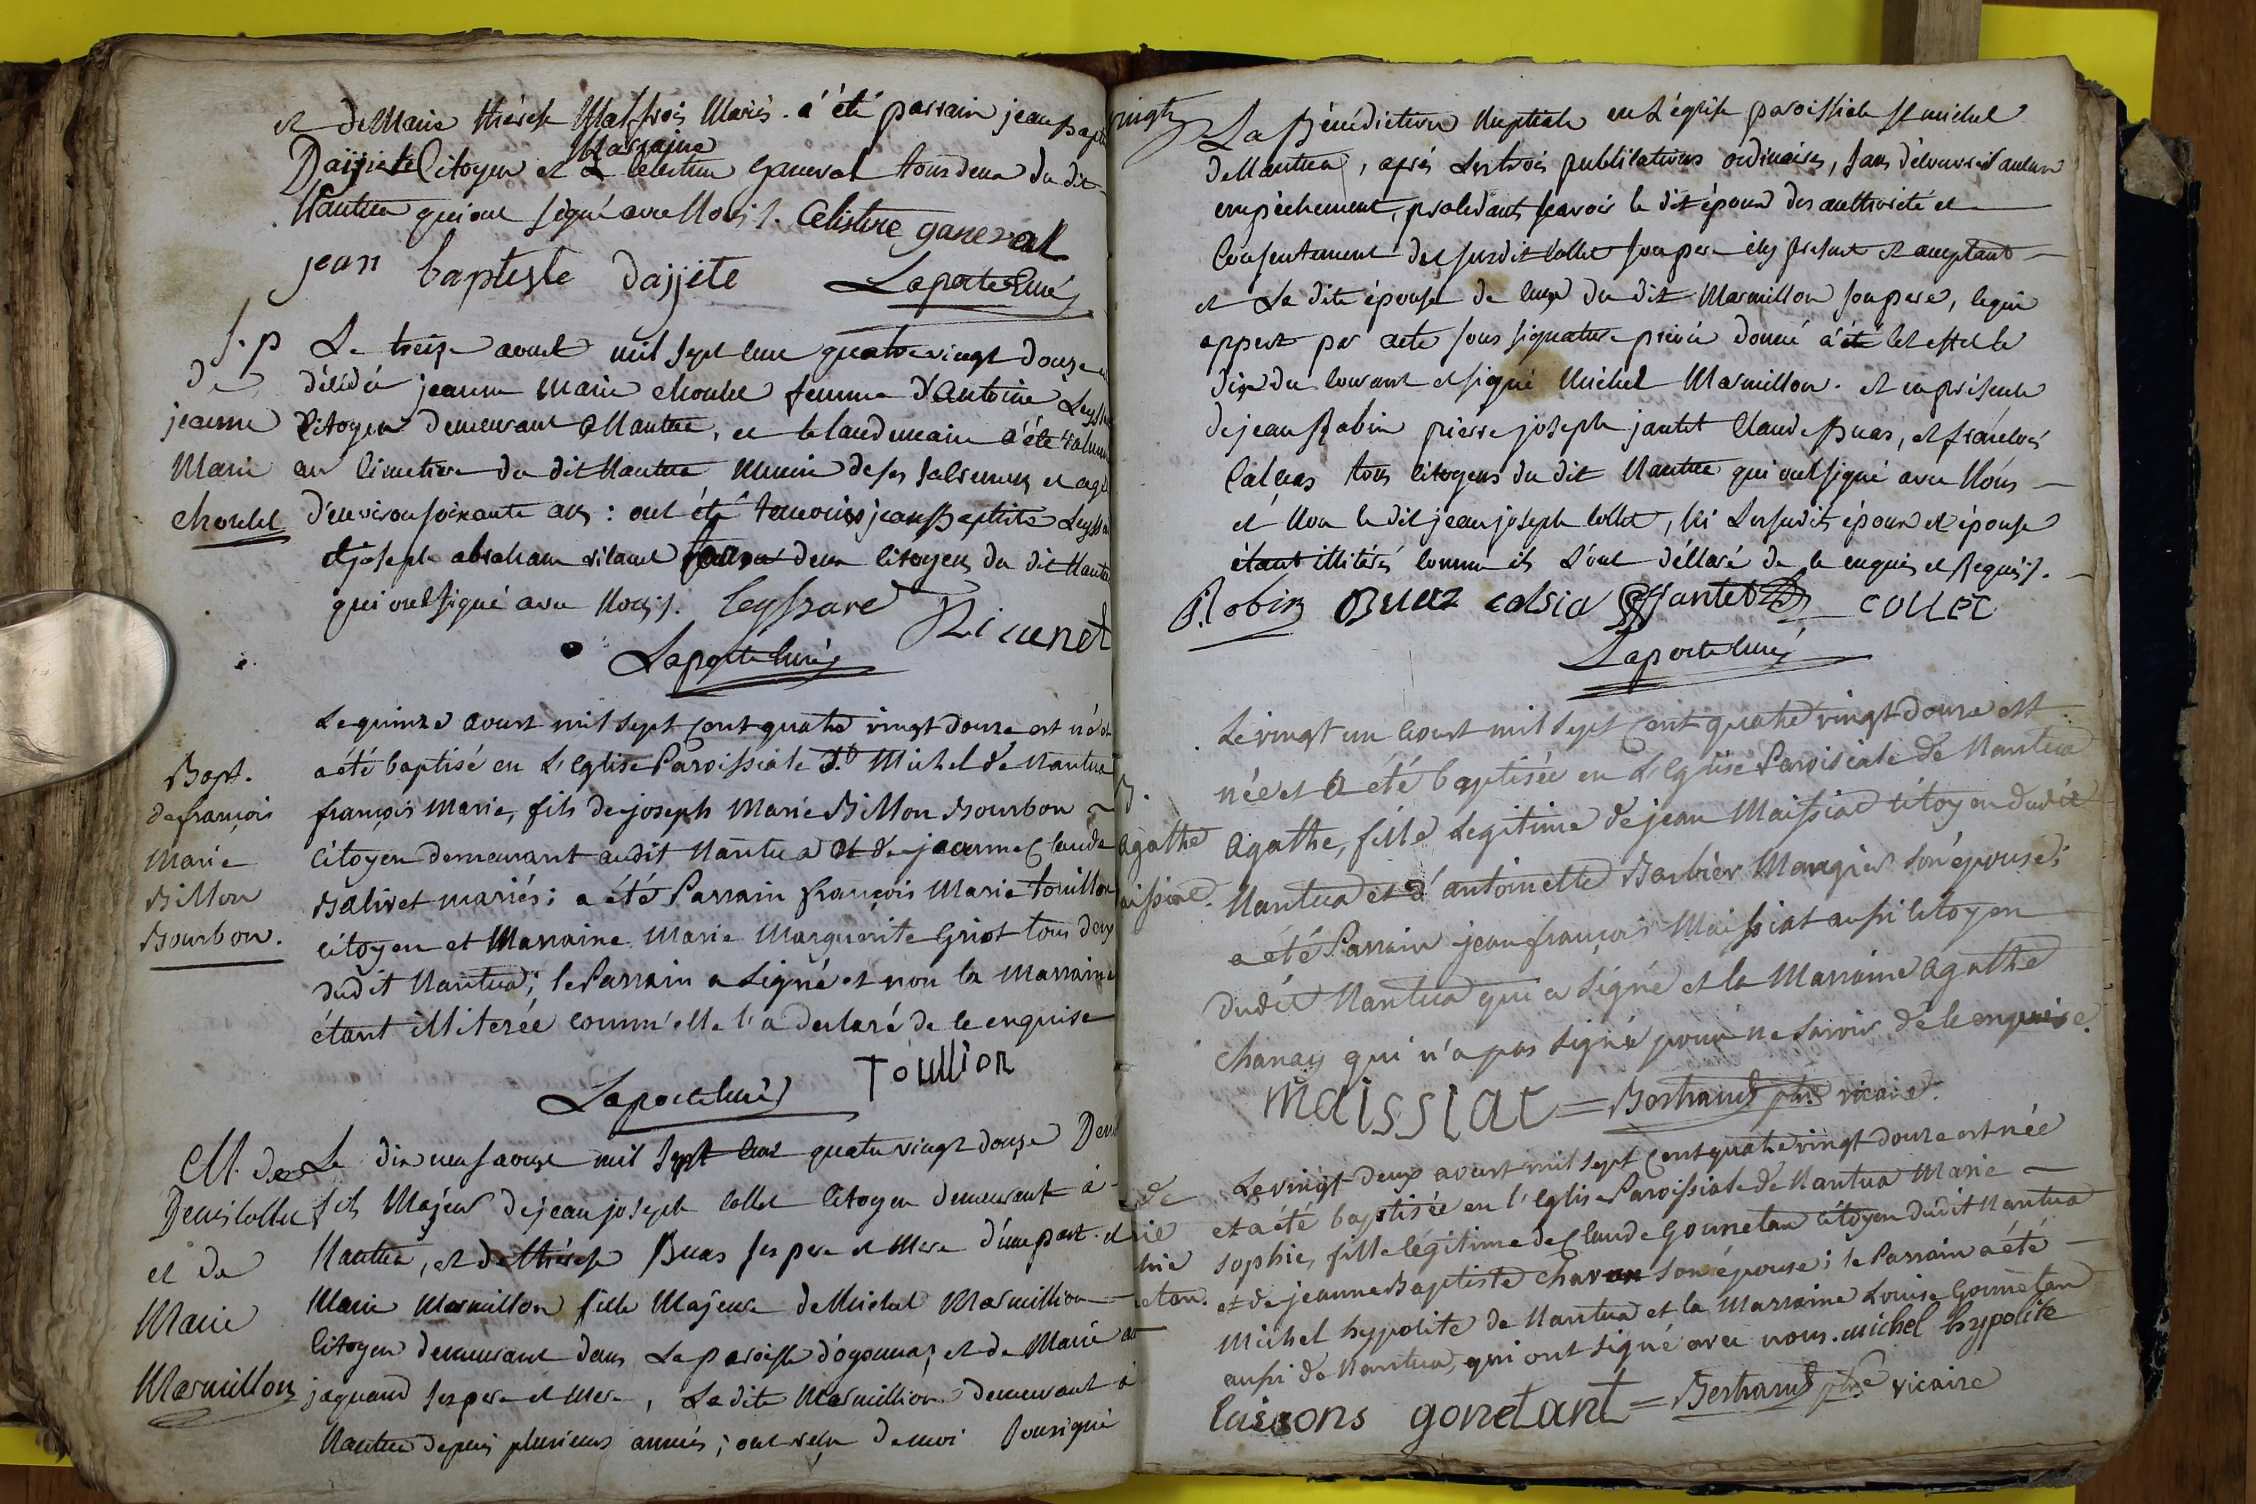 et de Marie thérese Malfroi Mariés. a été parrain jean bapt
Dajjete Citoyen et Marraine Celestine ganeval tous deux du dit
Nantua qui ont signé avec Nous /. Celistine ganeval
jean baptiste dajjete Laporte Curé
S. p Le treize avoust mil sept cent quatre vingt douze
de
décédée jeanne Marie choulet femme d'Antoine Leyss
jeanne
Citoyen demeurant a Nantua, et le landemain a été
Marie
au Cimetiere du dit Nantua Munie de ses Sacremens et agée
choulet
d'environ soixante ans : ont été temoins jean Baptiste Leyss
et joseph abraham deux citoyens du dit Nantua
qui ont signé avec Nous /. leyssare
Laporte Curé
Le quinze avoust mil sept cent quatre vingt douze est né et
Bapt.
a été baptisé en L'Eglise Paroissiale St Michel de Nantua
de françois
françois Marie, fils de joseph Marie Billon Bourbon
Marie
Citoyen demeurant audit Nantua et de jeanne Claude
Billon
Balivet mariés; a été Parrain françois Marie touillon
Bourbon.
citoyen et Marraine Marie Marguerite Griot tous deux
dudit Nantua; le Parrain a signé et non la Marraine
étant illiterée comm'elle l'a declaré de ce enquise
Toullion
Laporte Curé
M. de
Le dix neuf avoust mil sept cent quatre vingt douze Denis
Denis Collet
fils Majeur de jean joseph Collet Citoyen demeurant à
et de
Nantua, et de thérese Buas ses pere et Mere d'une part. et
Marie
Marie Marmillon fille Majeure de Michel Marmillion
Marmillon
Citoyen demeurant dans La paroisse d'oyonnax, et de Marie
jaquand ses pere et Mere, La dite Marmillion demeurant à
Nantua depuis plusieurs années; ont reçu de moi soussigné
La Bénédiction Nuptiale en L'église paroissiale St michel
de Nantua, après Les trois publications ordinaires, sans découvrir d'aucun
empêchement, procédants sçavoir le dit époux des authorité et
Consentement du susdit Collet son pere icy présent et acceptant
et La dite épouse de ceux du dit Marmillon son pere, ce qui
appert par acte sous signature privée donné à cet effet le
dix du courant et signé Michel Marmillon. et en présence
de jean Robin pierre joseph jantet Claude Buas, et françois
Calças tous citoyens du dit Nantua qui ont signé avec Nous
et Non le dit jean joseph Collet, ni Les susdits époux et épouse
étant illiterés comme ils L'ont déclaré de ce enquis et Requis /.
Robin Buaz calsia Jantet collet
Laporte Curé
Le vingt un Aoust mil sept cent quatre vingt douze est
née et a été baptisée en L'Eglise Paroissiale de Nantua
agathe
Agathe, fille Legitime de jean Maissiat citoyen dudit
Nantua et d'antoinette Barbier Mangier son épouse;
a été Parrain jean françois Maissiat aussi citoyen
dudit Nantua qui a signé et la Marraine Agathe
chanay qui n'a pas signé pour ne savoir de ce enquise.
maissiat = Bertrand ptre vicaire.
Le vingt deux avoust mil sept cent quatre vingt douze est née
et a été baptisée en l'Eglise Paroissiale de Nantua Marie
sophie, fille légitime de Claude Gounetan citoyen dudit Nantua
et de jeanne Baptiste son épouse; le Parrain a été
Michel hypolite de Nantua et la Marraine Louise Gounetan
aussi de Nantua, qui ont signé avec nous. michel hypolite
gonetant = Bertrand ptre vicaire